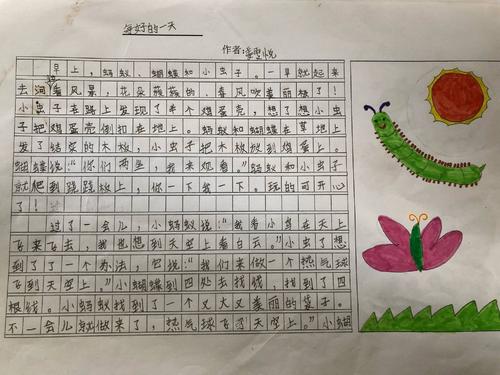 美好的一天
作者:姜
早上,蚂蚁、蝴蝶和小虫子。一早就起来
去河边看风景,花朵 的,春风吹 极了!
小虫子在路上发现了半个鸡蛋壳,想了想小虫
子把鸡蛋壳倒扣在地上。蚂蚁和蝴蝶在草地上
发了结实的木板,小虫子把木板放到鸡蛋上。
蝴蝶说:“你们两坐,我来观看。”蚂蚁和小虫子
就爬到跷跷板上,你一下我一下。玩的可开心
了!
过了一会儿,小蚂蚁说:“我看小鸟在天上
飞来飞去,我也想到天空上看白云”小虫子想
到了了一个办法,它说:“我们来做一个热气球
飞到天空上。”小蝴蝶到四处去找线,找到了四
根线。小蚂蚁找到了一个又大又美丽的袋子。
不一会儿就做来了,热气球飞了天空上。”小蝴